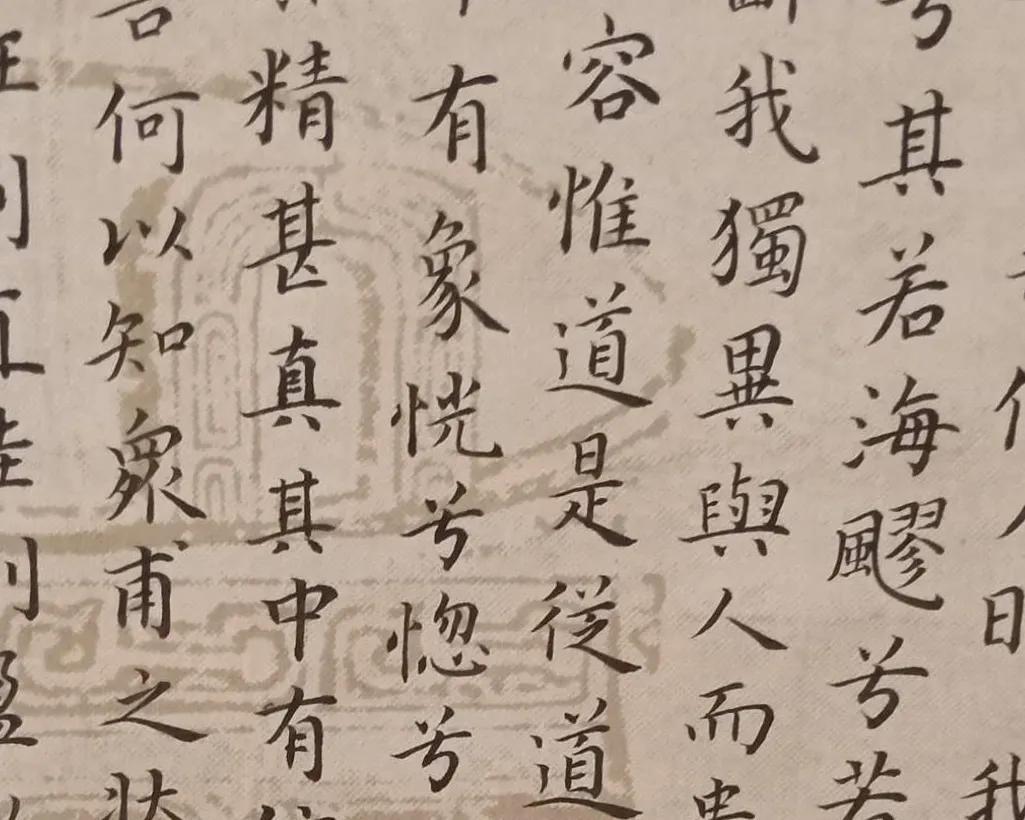 兮其若海飂兮若
我獨異與人而
容惟道是從道
有象恍兮惚兮
精甚真其中有
吾何以知眾甫之狀
盈